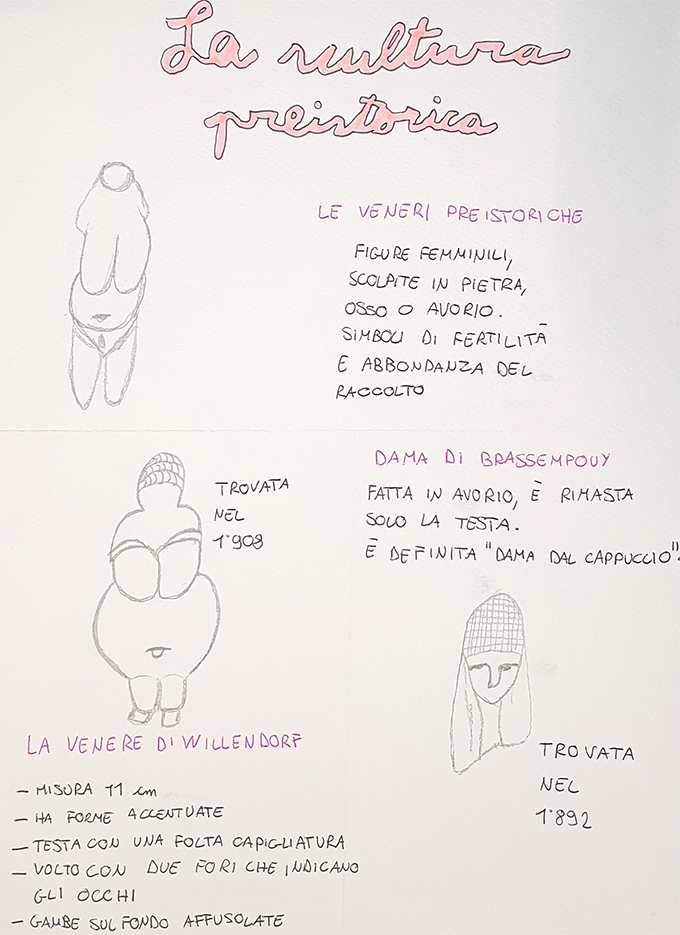 La scultura
preistorica
LE VENERI PREISTORICHE
FIGURE FEMMINILI,
SCOLPITE IN PIETRA,
OSSO O AVORIO.
SIMBOLI DI FERTILITÀ
E ABBONDANZA DEL
RACCOLTO
TROVATA
NEL
1°908
LA VENERE DI WILLENDORF
- MISURA 11 cm
- HA FORME ACCENTUATE
- TESTA CON UNA FOLTA CAPIGLIATURA
- VOLTO CON DUE FORI CHE INDICANO
GLI OCCHI
- GAMBE SUL FONDO AFFUSOLATE
DAMA DI BRASSEMPOUY
FATTA IN AVORIO, È RIMASTA
SOLO LA TESTA.
È DEFINITA "DAMA DAL CAPPUCCIO".
TROVATA
NEL
1°892